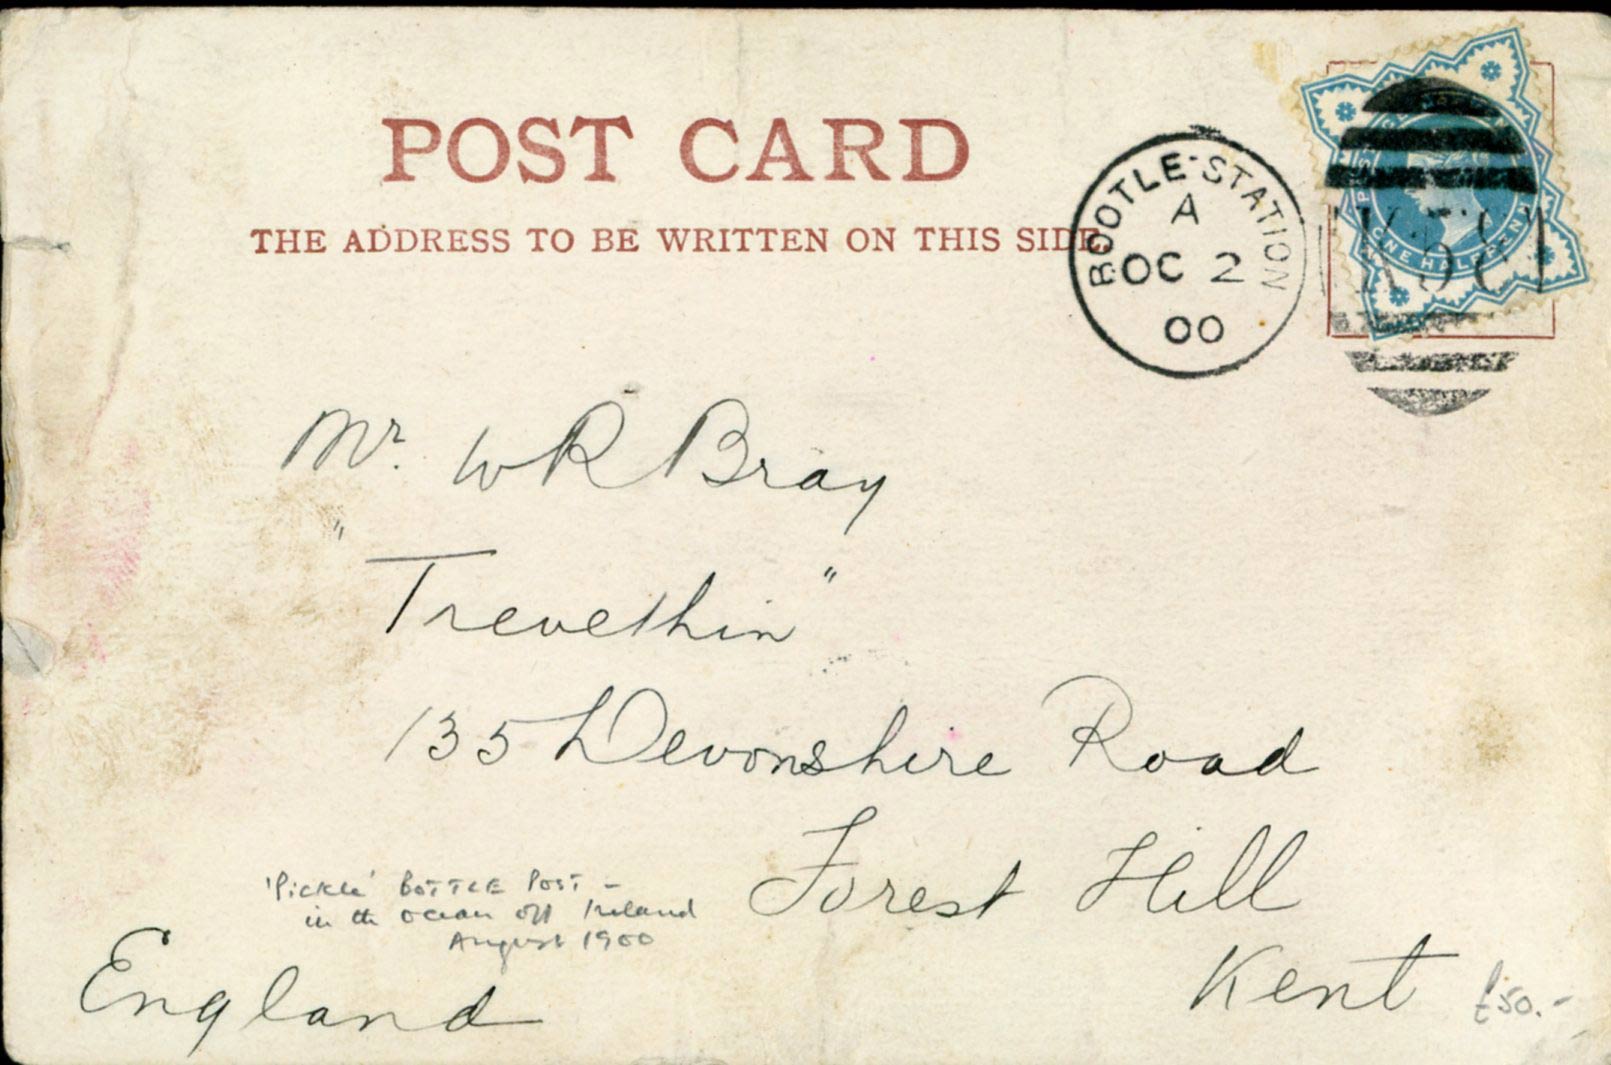 POST CARD
THE ADDRESS TO BE WRITTEN ON THIS SIDE
BOOTLE·STATION
A
OC 2
00
K58
ONE HALF PENNY
Mr. W R Bray
"Trevethin"
135 Devonshire Road
Forest Hill
Kent
England
'Pickle' BOTTLE POST –
in the ocean off Ireland
August 1900
£50.-